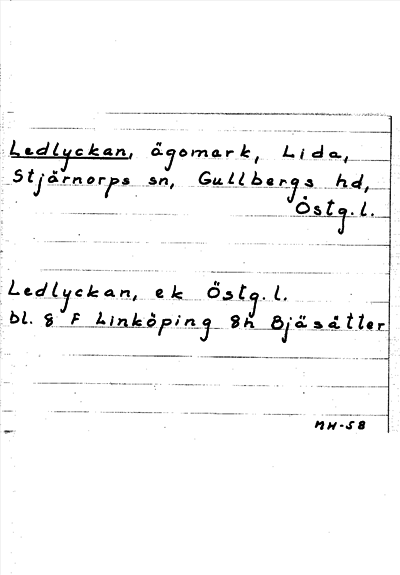 Ledlyckan, ägomark, Lida,
Stjärnorps sn, Gullbergs hd,
Östg.l.
Ledlyckan, ek Östg.l.
bl. 8 F Linköping 8h Bjäsätter
MH-58